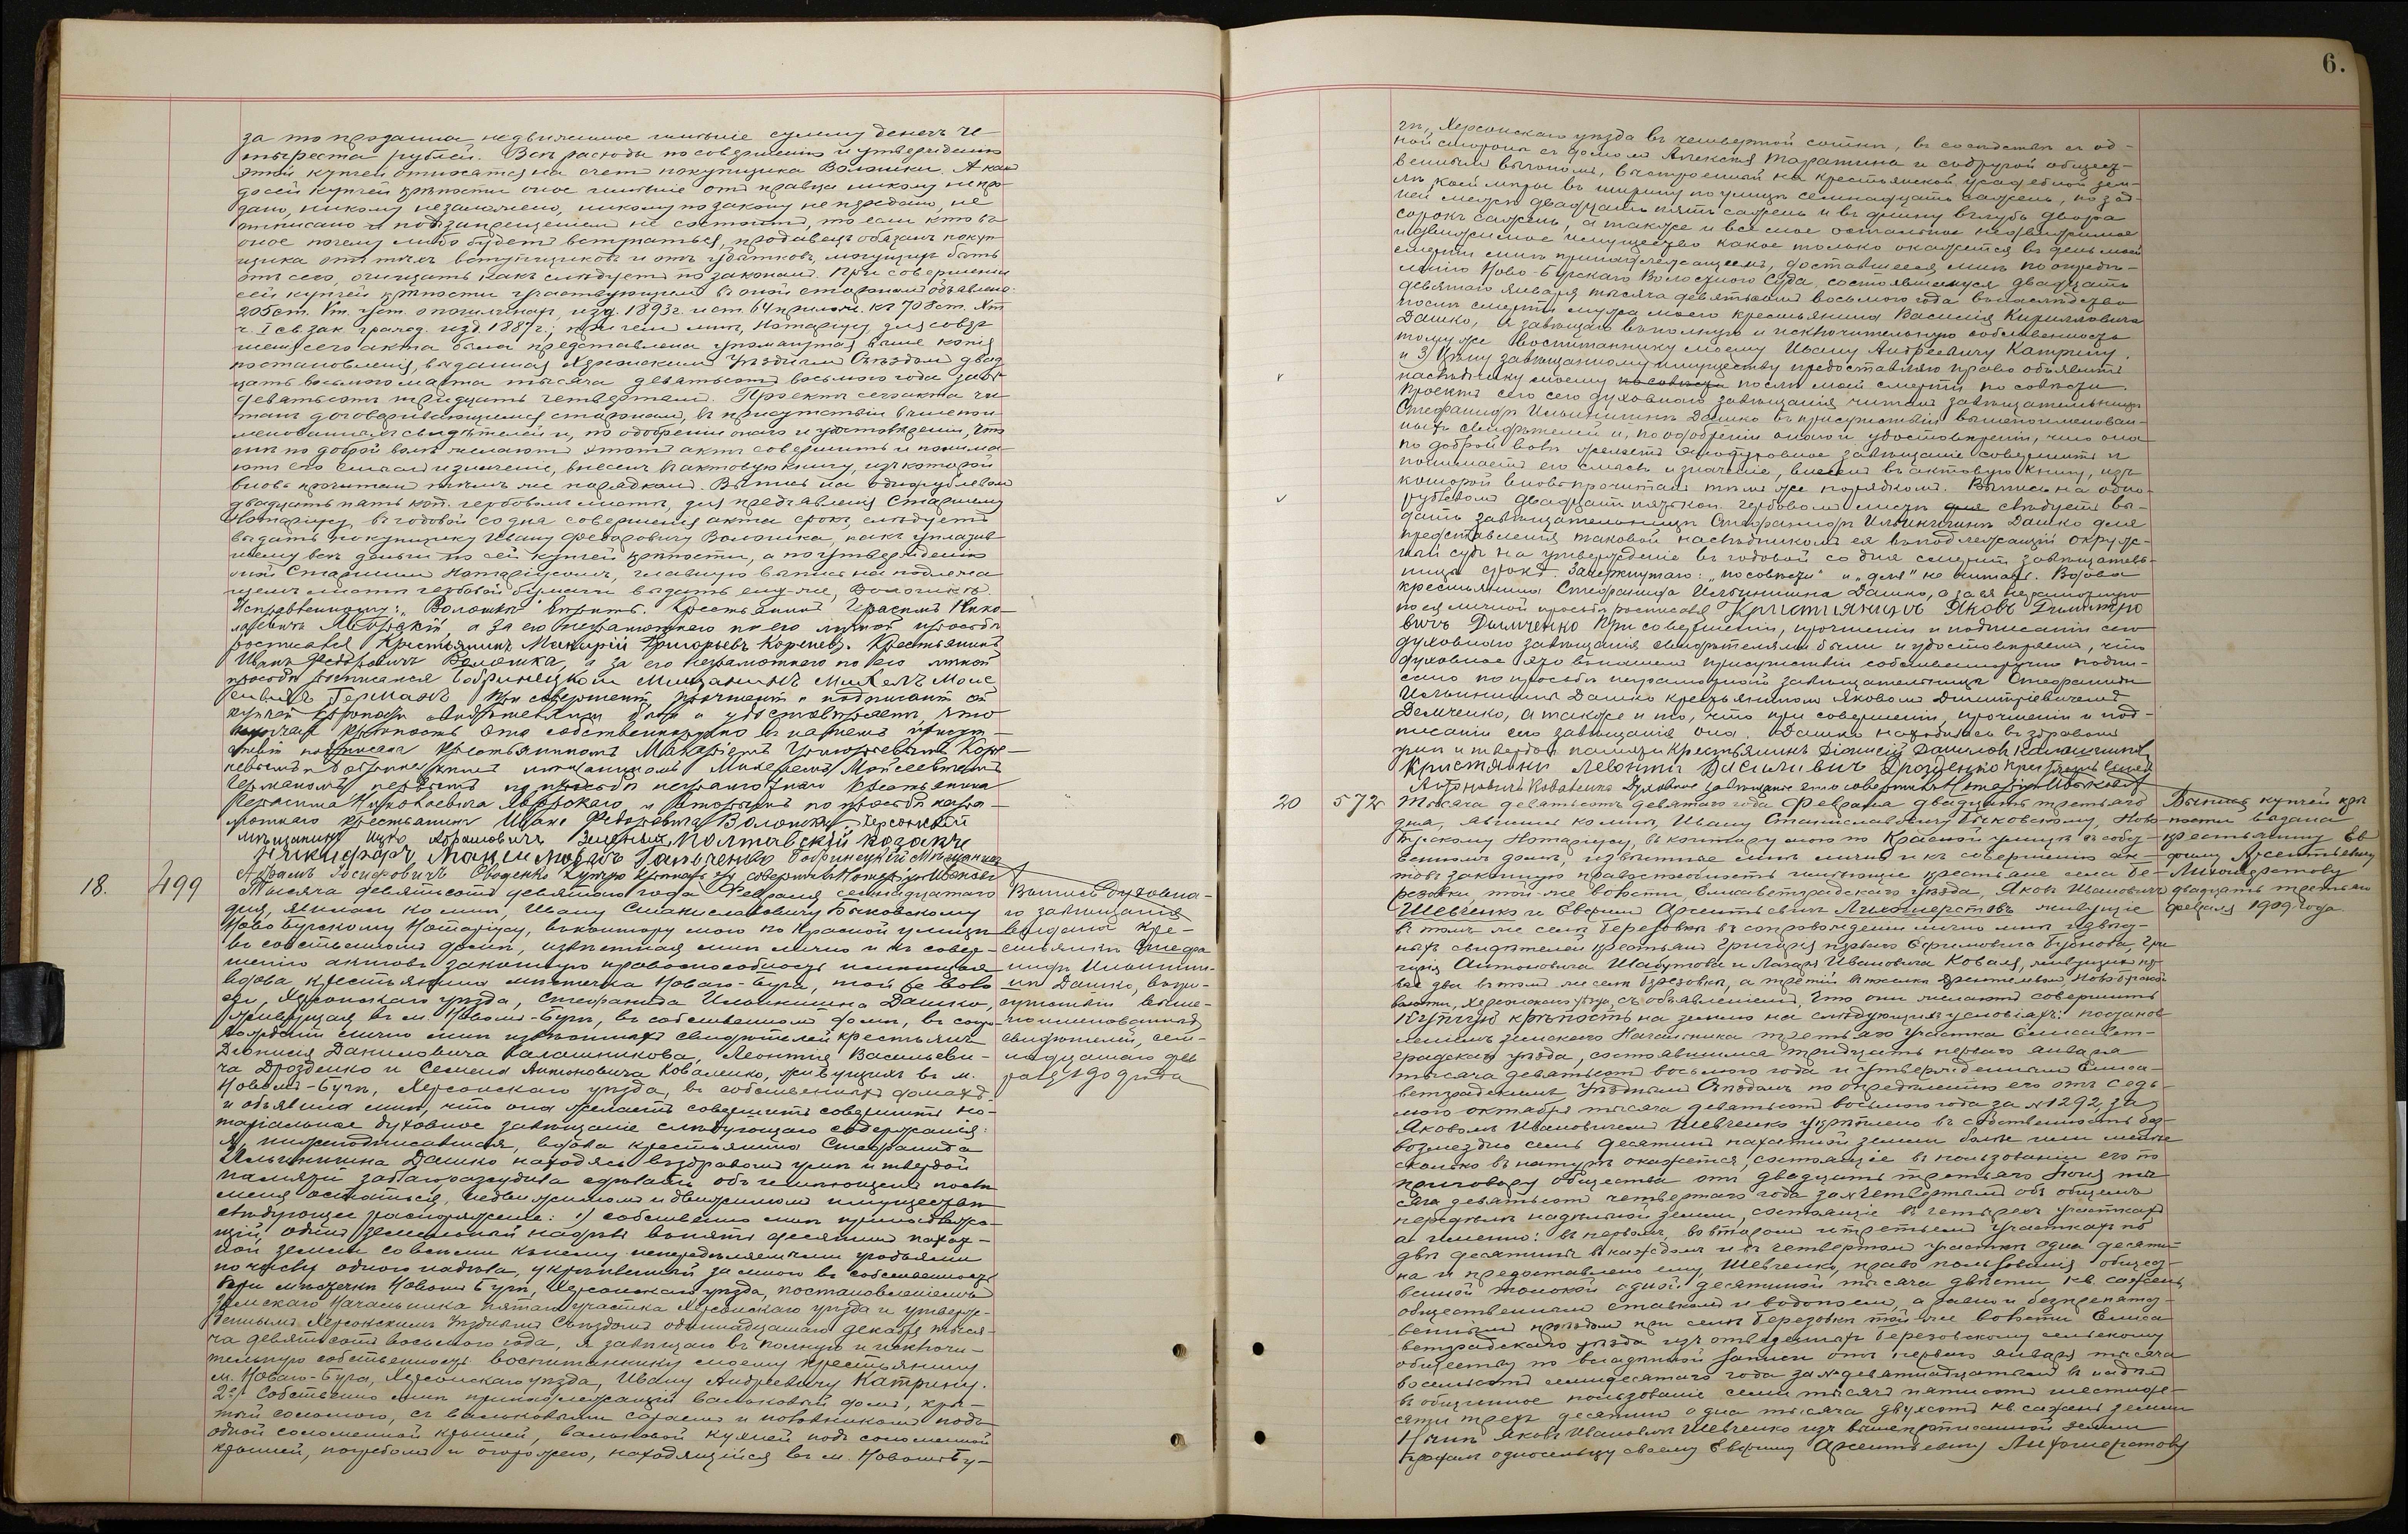 за то проданное недвижимое имѣніе сумму денегъ че-
тыреста рублей. Всѣ расходы по совершенію и утвержденію
этой купчей относятся на счетъ покупщика Волошки. А какъ
до сей купчей крѣпости оное имѣніе отъ продавца никому не про-
дано, никому незаложено, никому по закону не передано, не
отписано и подъ запрещеніемъ не состоитъ, то если кто въ
оное почему либо будетъ вступаться, продавецъ обязанъ покуп-
щика отъ тѣхъ вступщиковъ и отъ убытковъ, могущихъ быть
отъ сего, очищать какъ слѣдуетъ по законамъ. При совершеніи
сей купчей крѣпости участвующимъ въ оной сторонамъ объявлено
205 ст. Уст. о пошлинахъ, изд. 1893 г. и ст. 64 прилож. къ 708 ст. Хт.
ч. I св. зак. гражд. изд. 1887 г.; при чемъ мнѣ, Нотаріусу, для совер-
шенія сего акта была представлена упомянутая выше копія
постановленія, выданная Херсонскимъ Уѣзднымъ Съѣздомъ двад-
цать восьмого марта тысяча девятьсотъ восьмого года за №
девятьсотъ тридцать четвертымъ. Проектъ сего акта чи-
танъ договаривающимся сторонамъ, въ присутствіи вышепои-
менованныхъ свидѣтелей и, по одобреніи онаго и удостовѣреніи, что
они по доброй волѣ желаютъ этотъ актъ совершить и понима-
ютъ его смыслъ и значеніе, внесенъ въ актовую книгу, изъ которой
вновь прочитанъ тѣмъ же порядкомъ. Выпись на однорублевомъ
двадцать пять коп. гербовомъ листѣ, для представленія Старшему
Нотаріусу, въ годовой со дня совершенія акта срокъ, слѣдуетъ
выдать покупщику Ивану Федоровичу Волошка, какъ уплатив-
шему всѣ деньги по сей купчей крѣпости, а по утвержденіи
оной Старшимъ Нотаріусомъ, главную выпись на подлежа-
щемъ листѣ гербовой бумаги выдать ему же, Волошкѣ.
Исправленному: „Волошкѣ" вѣрить. Крестьянинъ Герасимъ Нико-
лаевичъ Яворскій, а за его неграмотнаго по его личной просьбѣ
росписался Крестьянинъ Макарій Григорьевъ Корневъ. Крестьянинъ
Иванъ Федоровичъ Волошка, а за его неграмотнаго по его личной
просьбѣ росписался Бобринецкій Мищанинъ Михелъ Моис
еивичъ Германъ При совершеніи, прочтеніи и подписаніи сей
купчей крѣпости свидѣтелями были и удостовѣряемъ, что
купчая крѣпость эта собственноручно въ нашемъ присут-
ствіи подписана крестьяниномъ Макаріемъ Григорьевичемъ Кор-
невымъ и Бобринецкимъ мищаниномъ Михелемъ Мойсеевичемъ
Германомъ первымъ по просьбѣ неграмотнаго крестьянина
Герасима Николаевича Яворскаго, и вторымъ по просьбѣ негра-
мотнаго крестьянина Ивана Федоровича Волошки Херсонскій
мѣщанинъ Ицко Абрамовичъ Зицеръ Полтавскій козакъ
Никифоръ Максимовичъ Ганченко Бобринецкій Мѣщанинъ
Абрамъ Іосифовичъ Сводскій Купчую крѣпость эту совершилъ Нотаріусъ Ибыков
18. 499
Тысяча девятьсотъ девятаго года Февраля семнадцатаго
дня, явилась ко мнѣ, Ивану Станиславовичу Быковскому
Ново-Бугскому Нотаріусу, въ контору мою по Красной улицѣ
въ собственномъ домѣ, извѣстная мнѣ лично и къ совер-
шенію актовъ законную правоспособность имѣющая
вдова крестьянина мѣстечка Новаго-Буга, той же воло
сти, Херсонскаго уѣзда, Стефанида Ильинишна Дашко,
живущая въ м. Новомъ-Бугѣ, въ собственномъ домѣ, въ сопро-
вожденіи лично мнѣ извѣстныхъ свидѣтелей крестьянъ
Діонисія Даниловича Калашникова, Леонтія Васильеви-
ча Дрозденко и Семена Антоновича Коваленко, живущихъ въ м.
Новомъ-Бугѣ, Херсонскаго уѣзда, въ собственныхъ домахъ
и объявила мнѣ, что она желаетъ совершить совершить но-
таріальное духовное завѣщаніе слѣдующаго содержанія:
Я, нижеподписавшаяся, вдова крестьянина Стефанида
Ильинишна Дашко находясь въ здравомъ умѣ и твердой
памяти заблагоразсудила сдѣлать объ имѣющемъ послѣ
меня остаться, недвижимомъ и движимомъ имуществѣ
слѣдующее распоряженіе: 1) собственно мнѣ принадлежа-
щій, одинъ земельный надѣлъ въ пять десятинъ пахат-
ной земли со всѣми къ нему непередѣляемыми угодьями
по числу одного надѣла, укрѣпленный за мною въ собственность
при мѣстечкѣ Новомъ Бугѣ, Херсонскаго уѣзда, постановленіемъ
Земскаго Начальника пятаго участка Херсонскаго уѣзда и утверж-
деннымъ Херсонскимъ Уѣзднымъ Съѣздомъ одиннадцатаго декабря тыся-
ча девятьсотъ восьмого года, я завѣщаю въ полную и исключи-
тельную собственность воспитаннику моему крестьянину
м. Новаго-Буга, Херсонскаго уѣзда, Ивану Андреевичу Катрину.
2е) Собственно мнѣ принадлежащій вальковый домъ, кры-
тый соломою, съ вальковыми сараемъ и половникомъ подъ
одной соломенной крышей, вальковой кухней подъ соломенной
крышей, погребомъ и огорожею, находящійся въ м. Новомъ-Бу-
Выпись духовна-
го завѣщанія
выдана кре-
стьянкѣ Стефа
нидѣ Ильиниш-
нѣ Дашко, въ при-
сутствіи выше-
поименованныхъ
свидѣтелей, сем-
надцатаго фев
раля 1909 года
6.
гѣ, Херсонскаго уѣзда въ четвертой сотнѣ, въ сосѣдствѣ съ од-
ной стороны съ домомъ Алексѣя Таратина и съ другой общест-
веннымъ выгономъ, выстроенный на крестьянской усадебной зем-
лѣ, коей мѣрою въ ширину по улицѣ семнадцать сажень, по зад-
ней межѣ двадцать пять сажень и въ длину въ глубь двора
сорокъ сажень, а также и все мое остальное недвижимое
и движимое имущество какое только окажется въ день моей
смерти мнѣ принадлежащимъ, доставшееся мнѣ по опредѣ-
ленію Ново-Бугскаго Волостного Суда, состоявшемуся двадцать
девятаго января тысяча девятьсотъ восьмого года въ наслѣдство
послѣ смерти мужа моего крестьянина Василія Кирилловича
Дашко, я завѣщаю въ полную и исключительную собственность
тому же воспитаннику моему Ивану Андреевичу Катрину.
и 3) Цѣну завѣщанному имуществу предоставляю право объявить
наслѣднику моему по совѣсти послѣ моей смерти по совѣсти.
Проектъ сего сего духовнаго завѣщанія читанъ завѣщательницѣ
Стефанидѣ Ильинишнѣ Дашко въ присутствіи вышепоименован-
ныхъ свидѣтелей и, по одобреніи онаго и удостовѣреніи, что она
по доброй волѣ желаетъ это духовное завѣщаніе совершить и
понимаетъ его смыслъ и значеніе, внесенъ въ актовую книгу, изъ
которой вновь прочитанъ тѣмъ же порядкомъ. Выпись на одно-
рублевомъ двадцати пяти коп. гербовомъ листѣ для слѣдуетъ вы-
дать завѣщательницѣ Стефанидѣ Ильинишнѣ Дашко для
представленія таковой наслѣдникомъ ея въ подлежащій окруж-
ный судъ на утвержденіе въ годовой со дня смерти завѣщатель-
ницы срокъ. Зачеркнутаго: „по совѣсти" и „для" не читать. Вдова
крестьянина Стефанида Ильинишна Дашко, а за ея неграмотную
по ея личной просьбѣ росписался Кристиянинъ Яковъ Димитріе
вичъ Дымченко При совершеніи, прочтеніи и подписаніи сего
духовнаго завѣщанія свидѣтелями были и удостовѣряемъ, что
духовное это въ нашемъ присутствіи собственноручно подпи-
сано по просьбѣ неграмотной завѣщательницы Стефаниды
Ильинишны Дашко крестьяниномъ Яковомъ Димитріевичемъ
Демченко, а также и то, что при совершеніи, прочтеніи и под-
писаніи сего завѣщанія она, Дашко находилась въ здравомъ
умѣ и твердой памяти Крестьянинъ Діонисій Даниловъ Калашниковъ
Кристянин Левонтий Василивич Дрозденко Крестянин Семен
Антонович Коваленко Духовное завѣщаніе это совершилъ Нотаріусъ Ибыков
20 572
Тысяча девятьсотъ девятаго года Февраля двадцать третьяго
дня, явились ко мнѣ, Ивану Станиславовичу Быковскому, Ново
Бугскому Нотаріусу, въ контору мою по Красной улицѣ въ собст-
венномъ домѣ, извѣстные мнѣ лично и къ совершенію ак-
товъ законную правоспособность имѣющіе крестьяне села Бе-
резовки той же волости, Елисаветградскаго уѣзда, Яковъ Ивановичъ
Шевченко и Ефимъ Арсентьевичъ Лихошерстовъ живущіе
въ томъ же селѣ Березовкѣ въ сопровожденіи лично мнѣ извѣст-
ныхъ свидѣтелей крестьянъ Григорія перваго Ефимовича Бубнова, Гри
горія Антоновича Шабутова и Лазаря Ивановича Коваля, живущихъ пер-
вые два въ томъ же селѣ Березовкѣ, а третій Ново-Бугской
волости, Херсонскаго уѣзда, съ объявленіемъ, что они желаютъ совершить
Купчую крѣпость на землю на слѣдующихъ условіяхъ: постанов-
леніемъ Земскаго Начальника третьяго участка Елисавет-
градскаго уѣзда, состоявшимся тридцать перваго января
тысяча девятьсотъ восьмого года и утвержденнымъ Елиса-
ветградскимъ Уѣзднымъ Съѣздомъ по опредѣленію его отъ седь-
мого октября тысяча девятьсотъ восьмого года за № 1292, за
Яковомъ Ивановичемъ Шевченко укрѣплено въ собственность без-
возмездно семь десятинъ пахатной земли болѣе или менѣе
сколько въ натурѣ окажется, состоящіе въ пользованіи его по
приговору общества отъ двадцать третьяго Іюня ты
сяча девятьсотъ четвертаго года за № четвертымъ объ общемъ
передѣлѣ надѣльной земли, состоящіе въ четырехъ участкахъ
а именно: въ первомъ, во второмъ и третьемъ участкахъ по
двѣ десятины въ каждомъ и въ четвертомъ участкѣ одна десяти-
на и предоставлено ему, Шевченко, право пользованія общест-
венной толокой одной десятиной тысяча двѣсти кв. сажень
общественнымъ ставкомъ и водопоемъ, а равно и безпрепятст-
веннымъ проѣздомъ при селѣ Березовкѣ той же волости Елиса
ветградскаго уѣзда изъ отведенныхъ Березовскому сельскому
обществу по владѣнной записи отъ перваго января тысяча
восемьсотъ семидесятаго года за № девятнадцатымъ въ надѣлъ
въ общинное пользованіе семи тысячъ пятисотъ шестиде-
сяти трехъ десятинъ одна тысяча двухсотъ кв. сажень земли
Нынѣ Яковъ Ивановичъ Шевченко изъ вышепрописанной земли
продалъ односельцу своему Ефиму Арсентьевичу Лихошерстову
Выпись купчей крѣ
пости выдана
крестьянину Еф
иму Арсентьевичу
Лихошерстову
двадцать третьяго
февраля 1909 года.